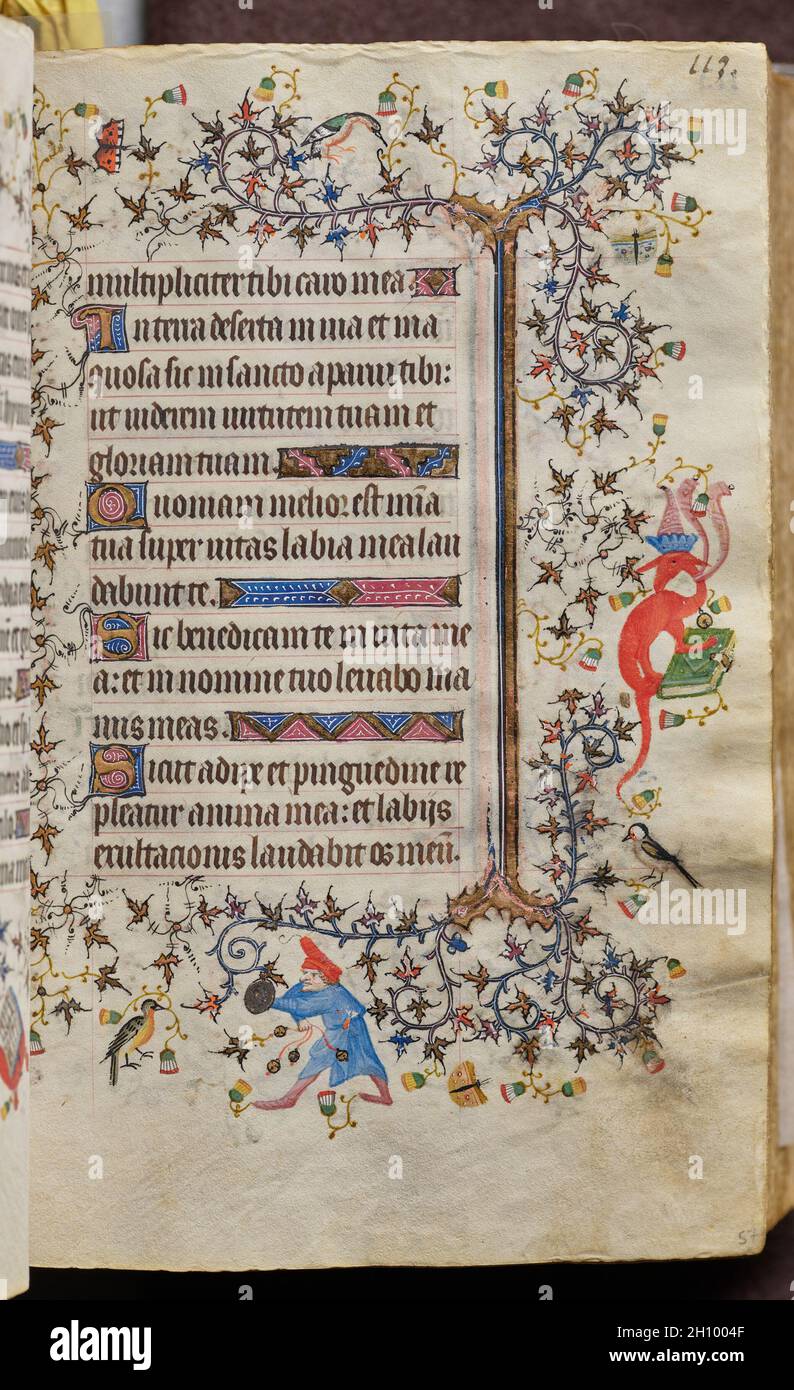 113.
multipliciter tibi caro mea
In terra deserta in uia et ina
quosa sic in sancto aparui tibi:
ut uiderem uirtutem tuam et
gloriam tuam.
Quoniam melior est mīa
tua super uitas labia mea lau
dabunt te.
Sic benedicam te in uita me
a: et in nomine tuo leuabo ma
nus meas.
Sicut adipe et pinguedine re
pleatur anima mea: et labijs
exultacionis laudabit os meū.
57
alamy
Image ID: 2H1004F
www.alamy.com